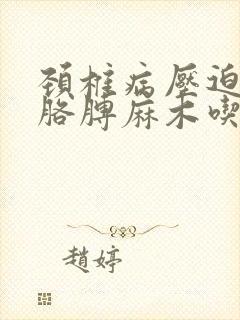 頚椎病壓迫
胳膊麻木喫
趙婷